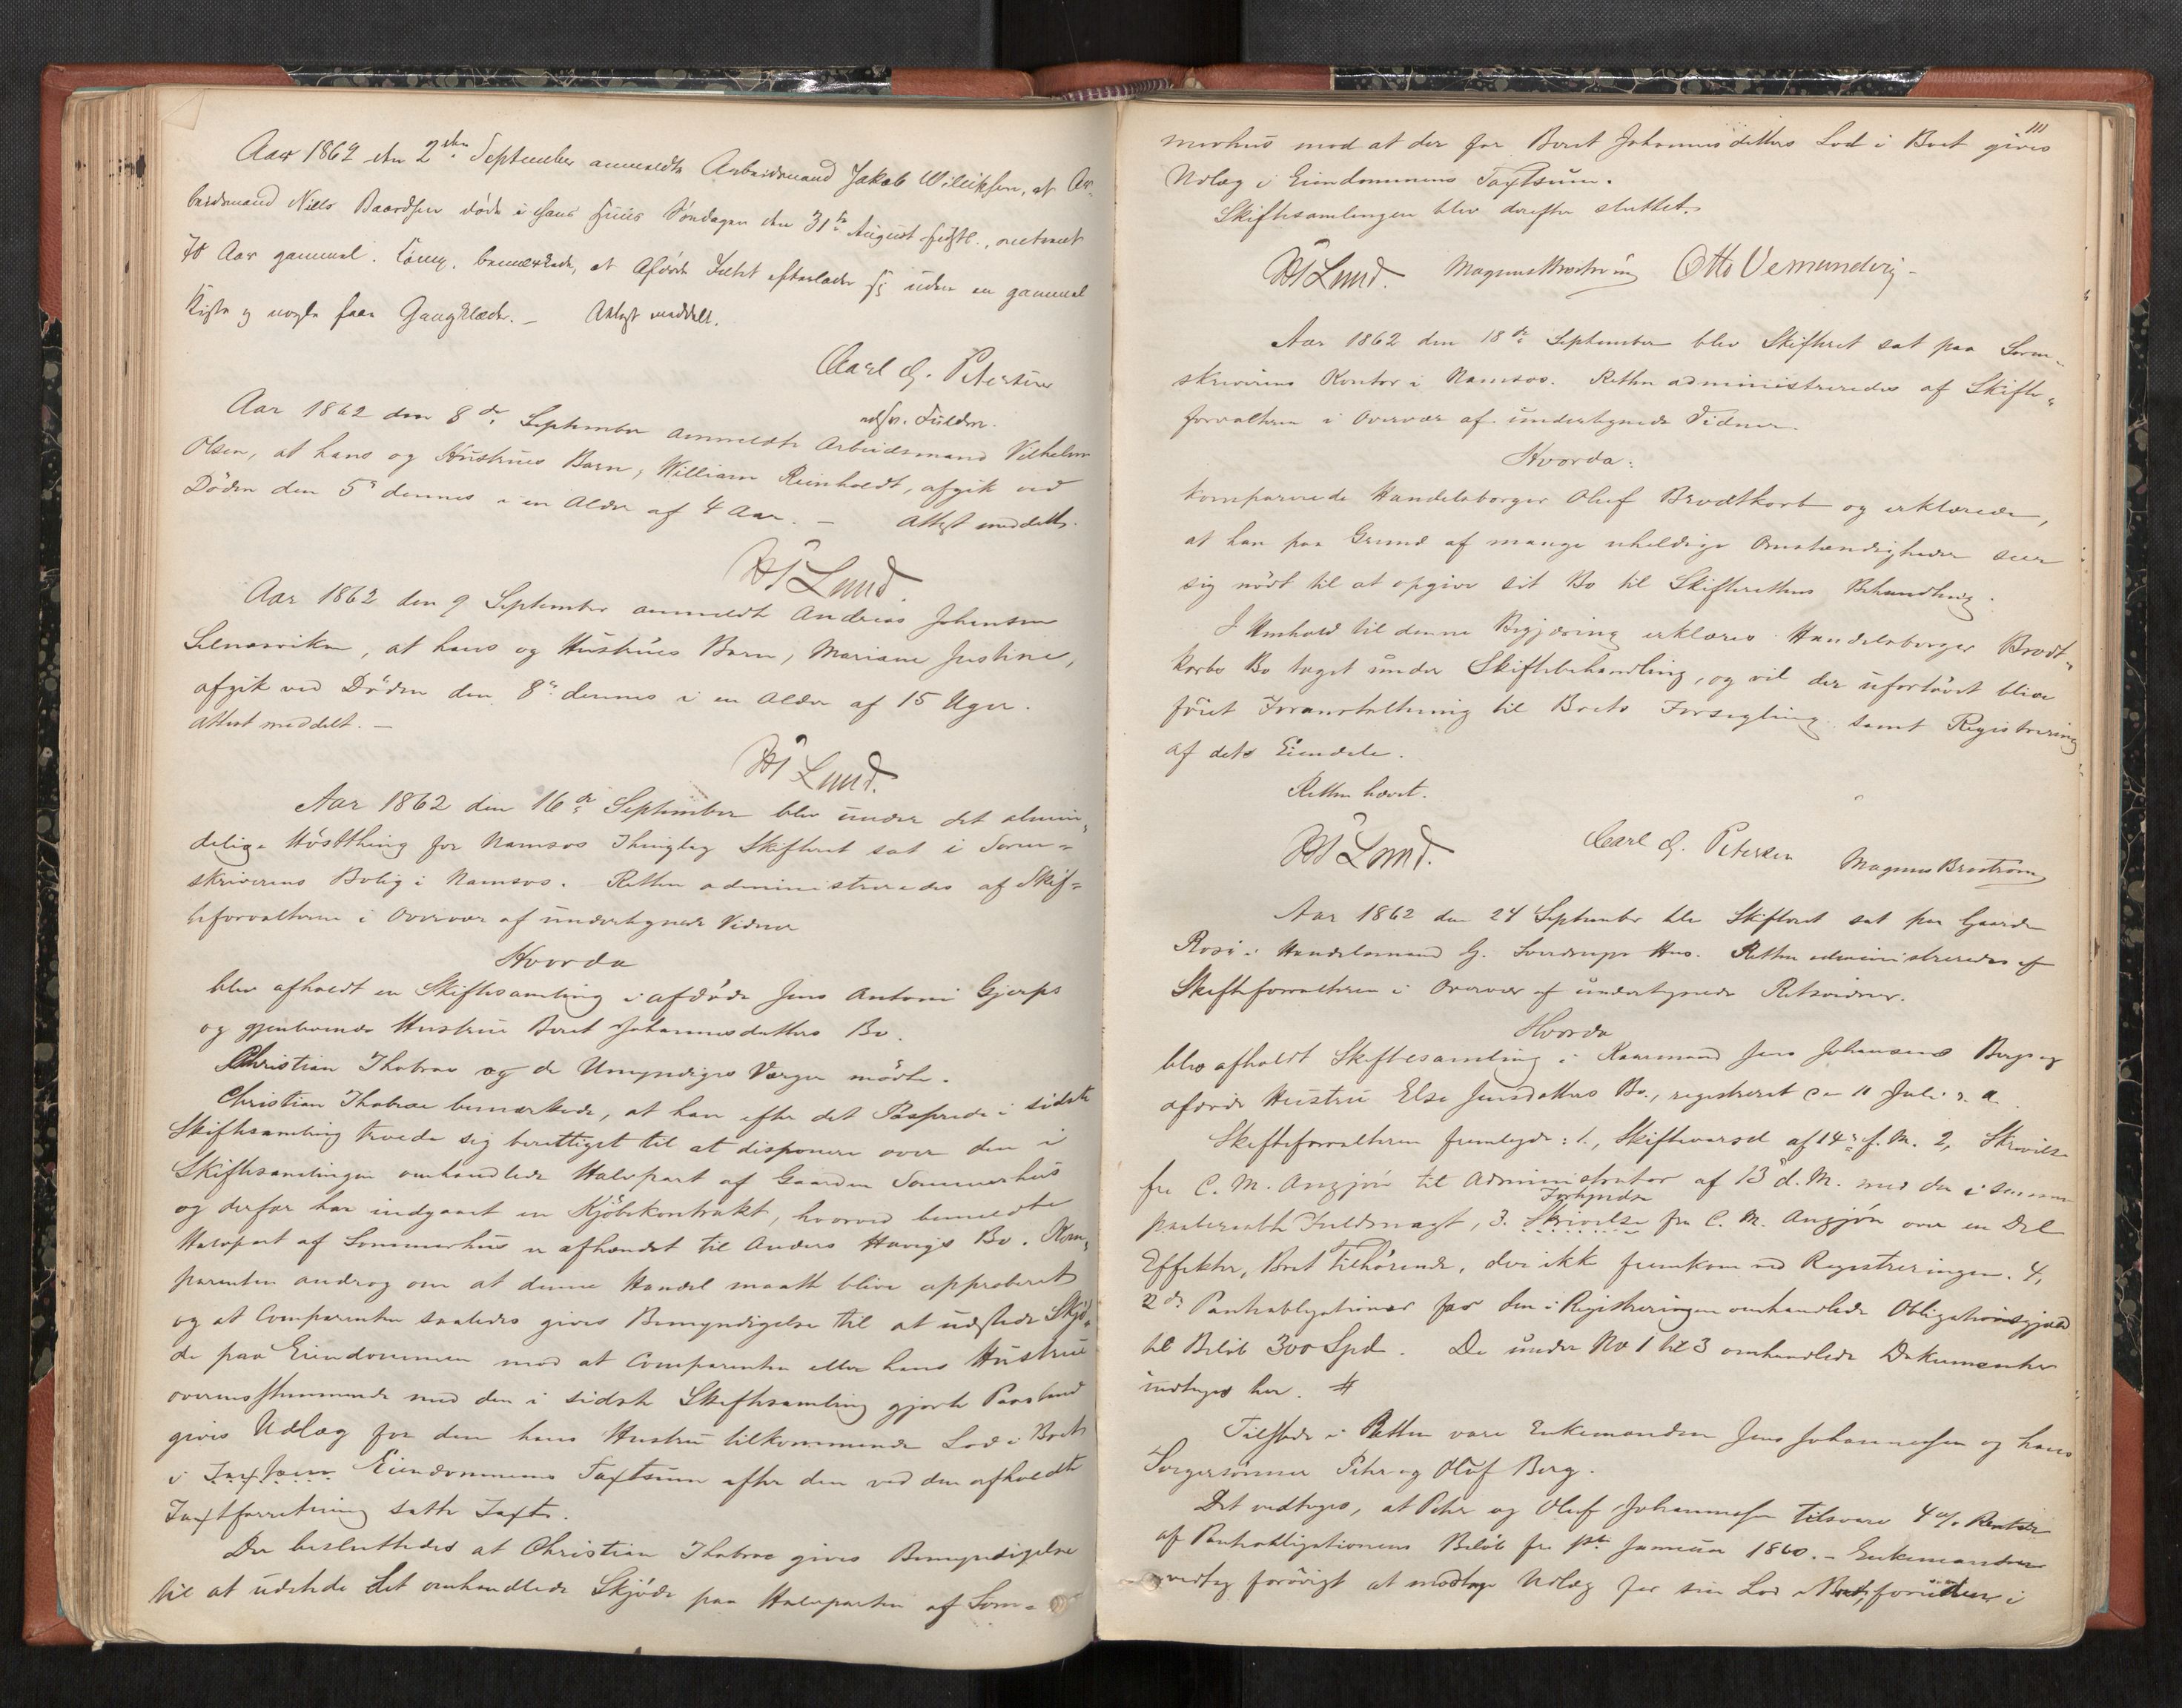 Aar 1862 den 2den September anmeldte Arbeidsmand Jakob Villiksen, at Ar-
beidsmand Niels Baardsen døde i hans Huus Søndagen den 31te August sidstl., omtrent
70 Aar gammel. Comp. bemærkede, at Afdøde Intet efterlader sig uden en gammel
Kiste og nogle faa Gangklæder. — Attest meddelt.
Carl G. Petersen
Aar 1862 den 8de September anmeldte Arbeidsmand Vilhelm
Olsen, at hans og Hustrues Barn, William Reinholdt, afgik ved
Døden den 5te dennes i en Alder af 4 Aar. — Attest meddelt.
Lund.
Aar 1862 den 9 September anmeldte Andreas Johnsen
, at hans og Hustrues Barn, Mariane Justine,
afgik ved Døden den 8de dennes i en Alder af 15 Uger.
Attest meddelt. —
Lund.
Aar 1862 den 16de September blev under det almin-
delige Høstthing for Namsos Thinglag Skifteret sat i Soren-
skriverens Bolig i Namsos. Retten administreredes af Skif-
teforvalteren i Overvær af undertegnede Vidner
Hvorda
blev afholdt en Skiftesamling i afdøde Jens Antoni Gjerps
og gjenlevende Hustrue Beret Johannesdatters Bo.
Christian Thobroe og de Umyndiges Værger mødte.
Christian Thobroe bemærkede, at han efter det Passerede i sidste
Skiftesamling troede sig berettiget til at disponere over den i
Skiftesamlingen omhandlede Halvpart af Gaarden Sommerhus
og derfor har indgaaet en Kjøbekontrakt, hvorved bemeldte
Halvpart af Sommerhus er afhændet til Anders Havigs Bo. Kom-
parenten androg om at denne Handel maatte blive approberet
og at Comparenten saaledes gives Bemyndigelse til at udstede Skjø-
de paa Eiendommen mod at Comparenten eller hans Hustrue
overensstemmende med den i sidste Skiftesamling gjorte Paastand
gives Udlæg for den hans Hustru tilkommende Lod i Boet
i Eiendommens Taxtsum efter den ved den afholdte
Taxtforretning satte Taxt.
Der besluttedes at Christian Thobroe gives Bemyndigelse
til at udstede det omhandlede Skjøde paa Halvparten af Som-
111
merhus mod at der for Beret Johannesdatters Lod i Boet gives
Udlæg i Eiendommens Taxtsum.
Skiftesamlingen blev derefter sluttet.
Lund. Magnus Brostrøm Otto Vemundvig
Aar 1862 den 18de September blev Skifteret sat paa Soren-
skriverens Kontor i Namsos. Retten administreredes af Skifte-
forvalteren i Overvær af undertegnede Vidner.
Hvorda:
komparerede Handelsborger Oluf Brodtkorb og erklærede,
at han paa Grund af mange uheldige Omstændigheder seer
sig nødt til at opgive sit Bo til Skifterettens Behandling.
I Henhold til denne Begjæring erklæres Handelsborger Brodt-
korbs Bo taget under Skiftebehandling, og vil der ufortøvet blive
føiet Foranstaltning til Boets Forsegling samt Registrering
af dets Eiendele.
Retten hævet.
Lund. Carl G. Petersen Magnus Brostrøm
Aar 1862 den 24 September blev Skifteret sat paa Gaarden
Rosø i Handelsmand G. Sverdrups Hus. Retten administreredes af
Skifteforvalteren i Overvær af undertegnede Retsvidner.
Hvorda
blev afholdt Skiftesamling i Kaarmand Jens Johansens Berg og
afdøde Hustru Else Jensdatters Bo, registreret den 10 Juli d. a.
Skifteforvalteren fremlagde: 1., Skiftevarsel af 14de f. M. 2, Skrivelse
fra C. M. Anzjøn til Administrator af 13 d. M. med den i samme
paaberaabte Fuldmagt, 3. Skrivelse Fortegnelse fra C. M. Anzjøn over en Del
Effekter, Boet Tilhørende, der ikke fremkom ved Registreringen. 4,
2de Panteobligationer for den i Registreringen omhandlede Obligationsgjæld
til Beløb 300 Spd. De under No 1 til 3 omhandlede Dokumenter
indtages her. #
Tilstede i Retten vare Enkemanden Jens Johannesen og hans
Peter og Oluf Berg.
Det vedtoges, at Peter og Oluf Johannesen tilsvare 4 % Renter
af Panteobligationens Beløb fra 1ste Januar 1860. — Enkemanden
vedtog forøvrigt at modtage Udlæg for sin Lod i Boet, foruden i